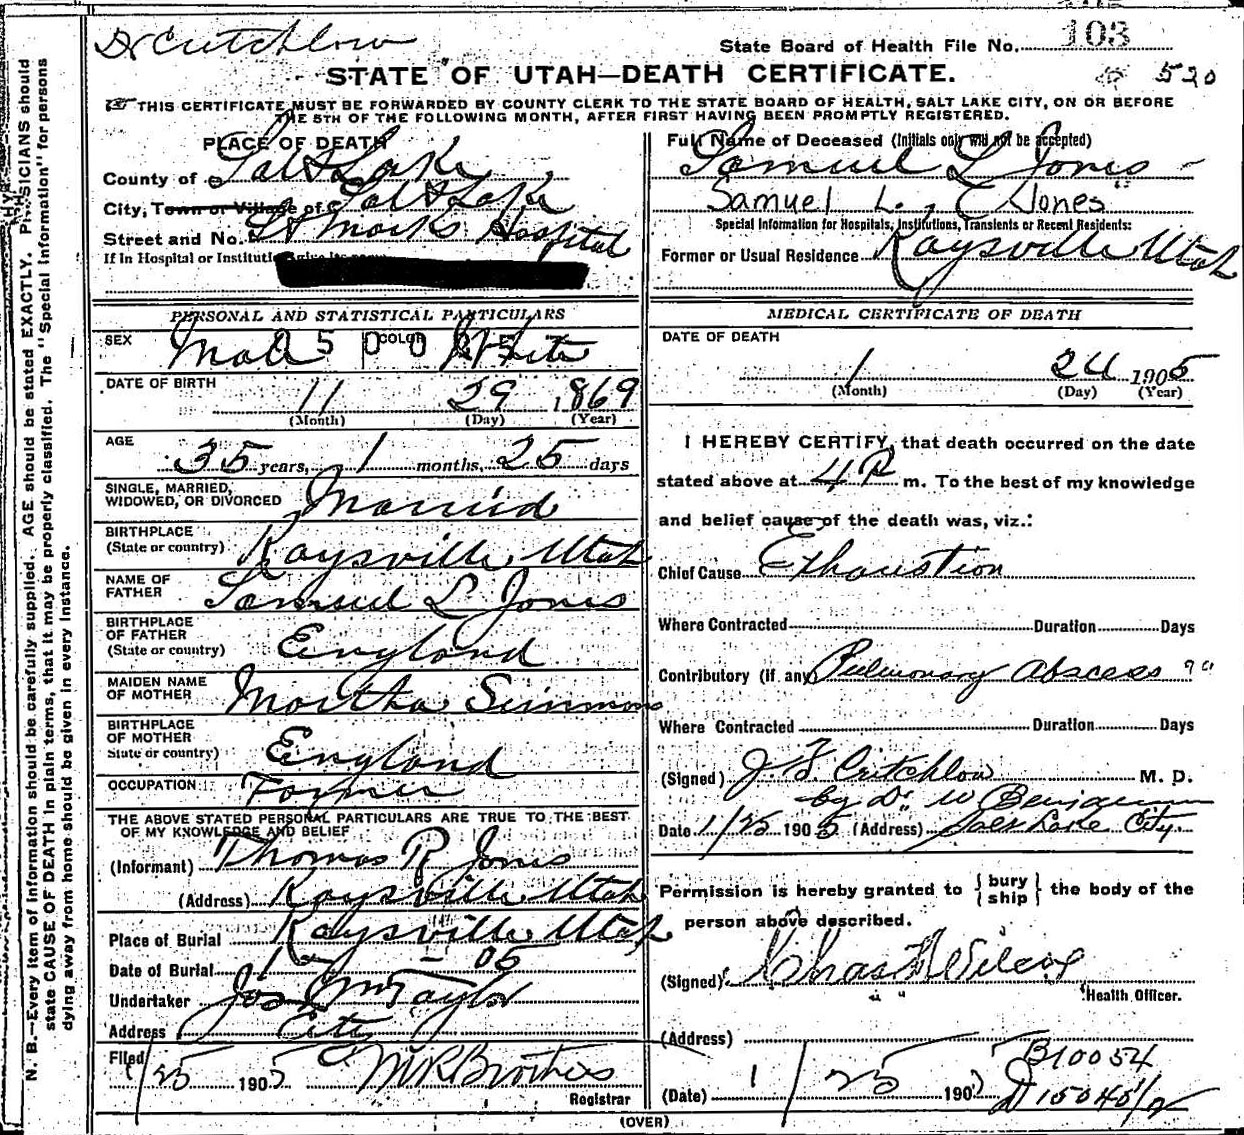 Dr Critchlow
State Board of Health File No. 103
STATE OF UTAH—DEATH CERTIFICATE.
520
THIS CERTIFICATE MUST BE FORWARDED BY COUNTY CLERK TO THE STATE BOARD OF HEALTH, SALT LAKE CITY, ON OR BEFORE
THE 5TH OF THE FOLLOWING MONTH, AFTER FIRST HAVING BEEN PROMPTLY REGISTERED.
PLACE OF DEATH
County of Salt Lake
City, Town or Village of Salt Lake
Street and No. St Marks Hospital
If in Hospital or Institution give its name
Full Name of Deceased (Initials only will not be accepted)
Samuel L Jones
Samuel L. Jones
Special Information for Hospitals, Institutions, Transients or Recent Residents:
Former or Usual Residence Kaysville Utah
PERSONAL AND STATISTICAL PARTICULARS
SEX Male COLOR White
DATE OF BIRTH
11 29 1869
(Month) (Day) (Year)
AGE
35 years, 1 months, 25 days
SINGLE, MARRIED,
WIDOWED, OR DIVORCED Married
BIRTHPLACE
(State or country) Kaysville Utah
NAME OF
FATHER Samuel L Jones
BIRTHPLACE
OF FATHER
(State or country) England
MAIDEN NAME
OF MOTHER Martha Simmons
BIRTHPLACE
OF MOTHER
State or country) England
OCCUPATION Farmer
THE ABOVE STATED PERSONAL PARTICULARS ARE TRUE TO THE BEST
OF MY KNOWLEDGE AND BELIEF
(Informant) Thomas R Jones
(Address) Kaysville Utah
Place of Burial Kaysville Utah
Date of Burial 1 - 05
Undertaker Jos Wm Taylor
Address City
Filed
1/25 1905 M R Brothers
Registrar
MEDICAL CERTIFICATE OF DEATH
DATE OF DEATH
1 24 1905
(Month) (Day) (Year)
I HEREBY CERTIFY, that death occurred on the date
stated above at 4 P m. To the best of my knowledge
and belief cause of the death was, viz.:
Chief Cause Exhaustion
Where Contracted Duration Days
Contributory (if any) Pulmonary abscess
Where Contracted Duration Days
(Signed) J. F. Critchlow M. D.
by Dr. W Benjamin
Date 1/25 1905 (Address) Salt Lake City.
Permission is hereby granted to { bury
ship } the body of the
person above described.
(Signed) Chas F Wilcox
Health Officer.
(Address)
B10054
(Date) 1/25 190
D 15045 1/2
(OVER)
N. B.—Every item of information should be carefully supplied. AGE should be stated EXACTLY. PHYSICIANS should
state CAUSE OF DEATH in plain terms, that it may be properly classified. The "Special Information" for persons
dying away from home should be given in every instance.